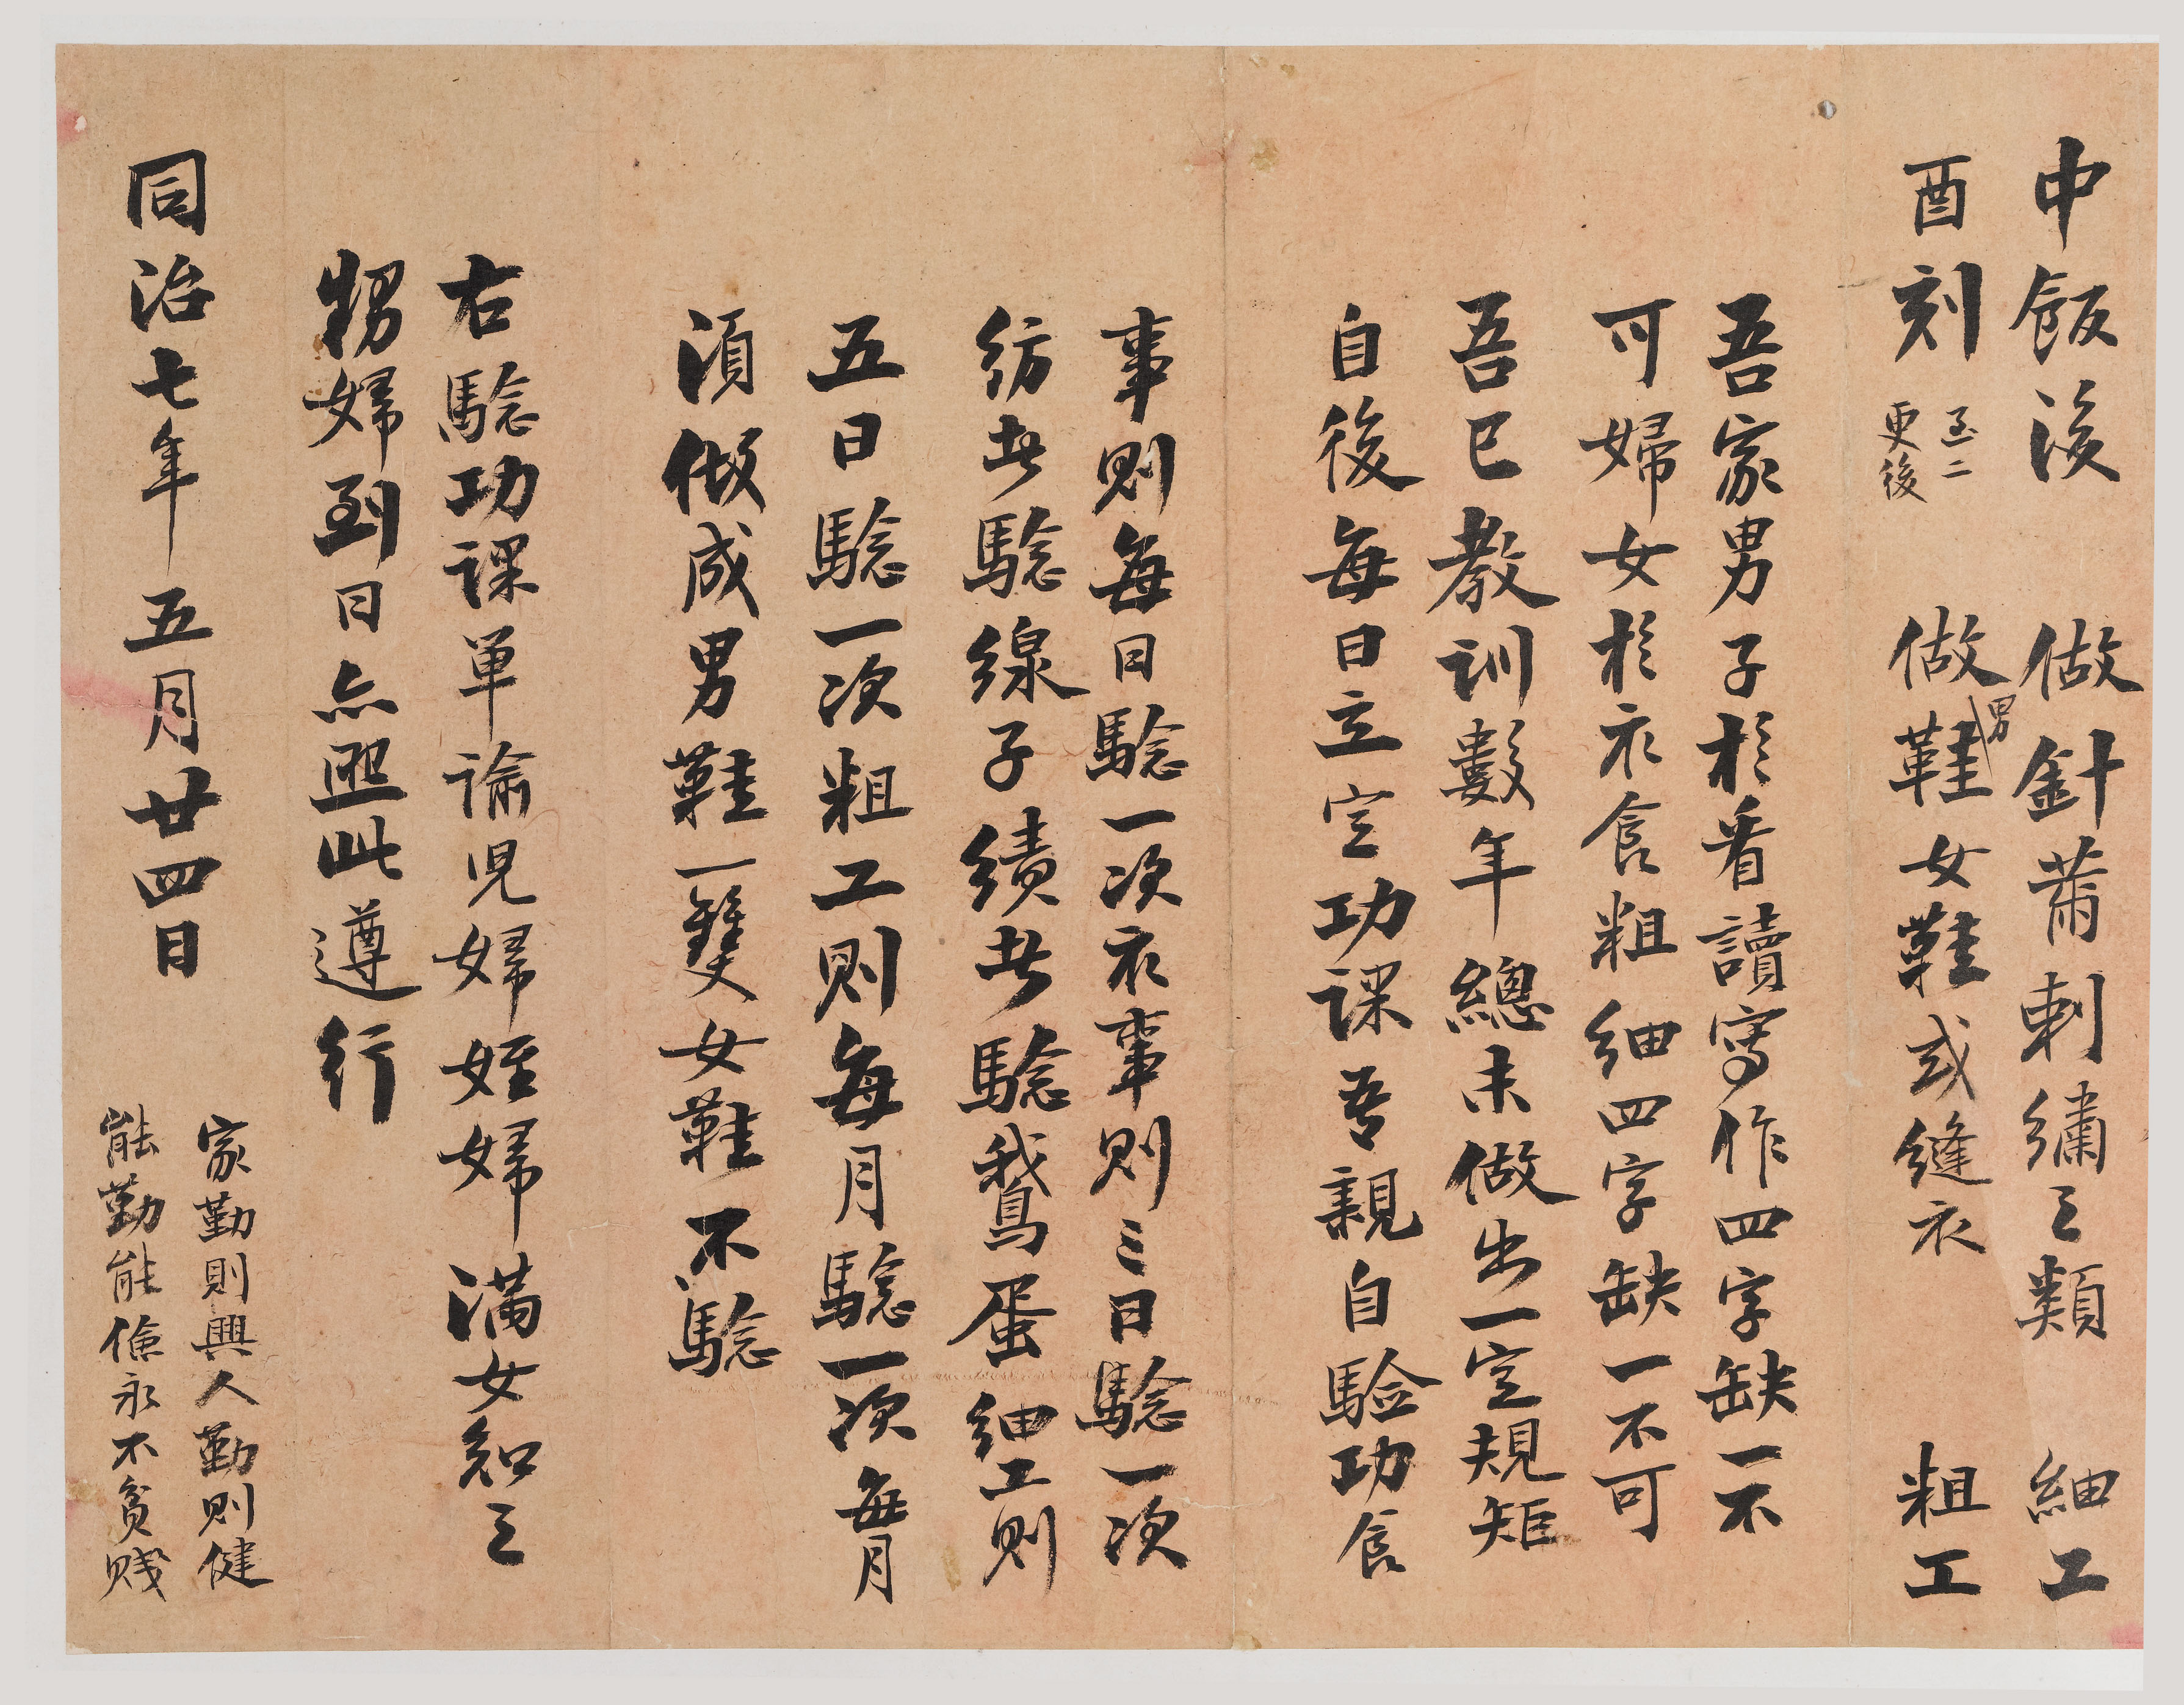 中飯後 做針黹刺繡之類 細工
酉刻 至二更後 做男鞋女鞋或縫衣 粗工
吾家男子於看讀寫作四字缺一不
可婦女於衣食粗細四字缺一不可
吾已教訓數年總未做出一定規矩
自後每日立定功課吾親自驗功食
事則每日驗一次衣事則三日驗一次
紡者驗線子績者驗鵝蛋細工則
五日驗一次粗工則每月驗一次每月
須做成男鞋一雙女鞋不驗
右驗功課單諭兒婦姪婦滿女知之
甥婦到日亦照此遵行
同治七年五月廿四日
家勤則興人勤則健
能勤能儉永不貧賤